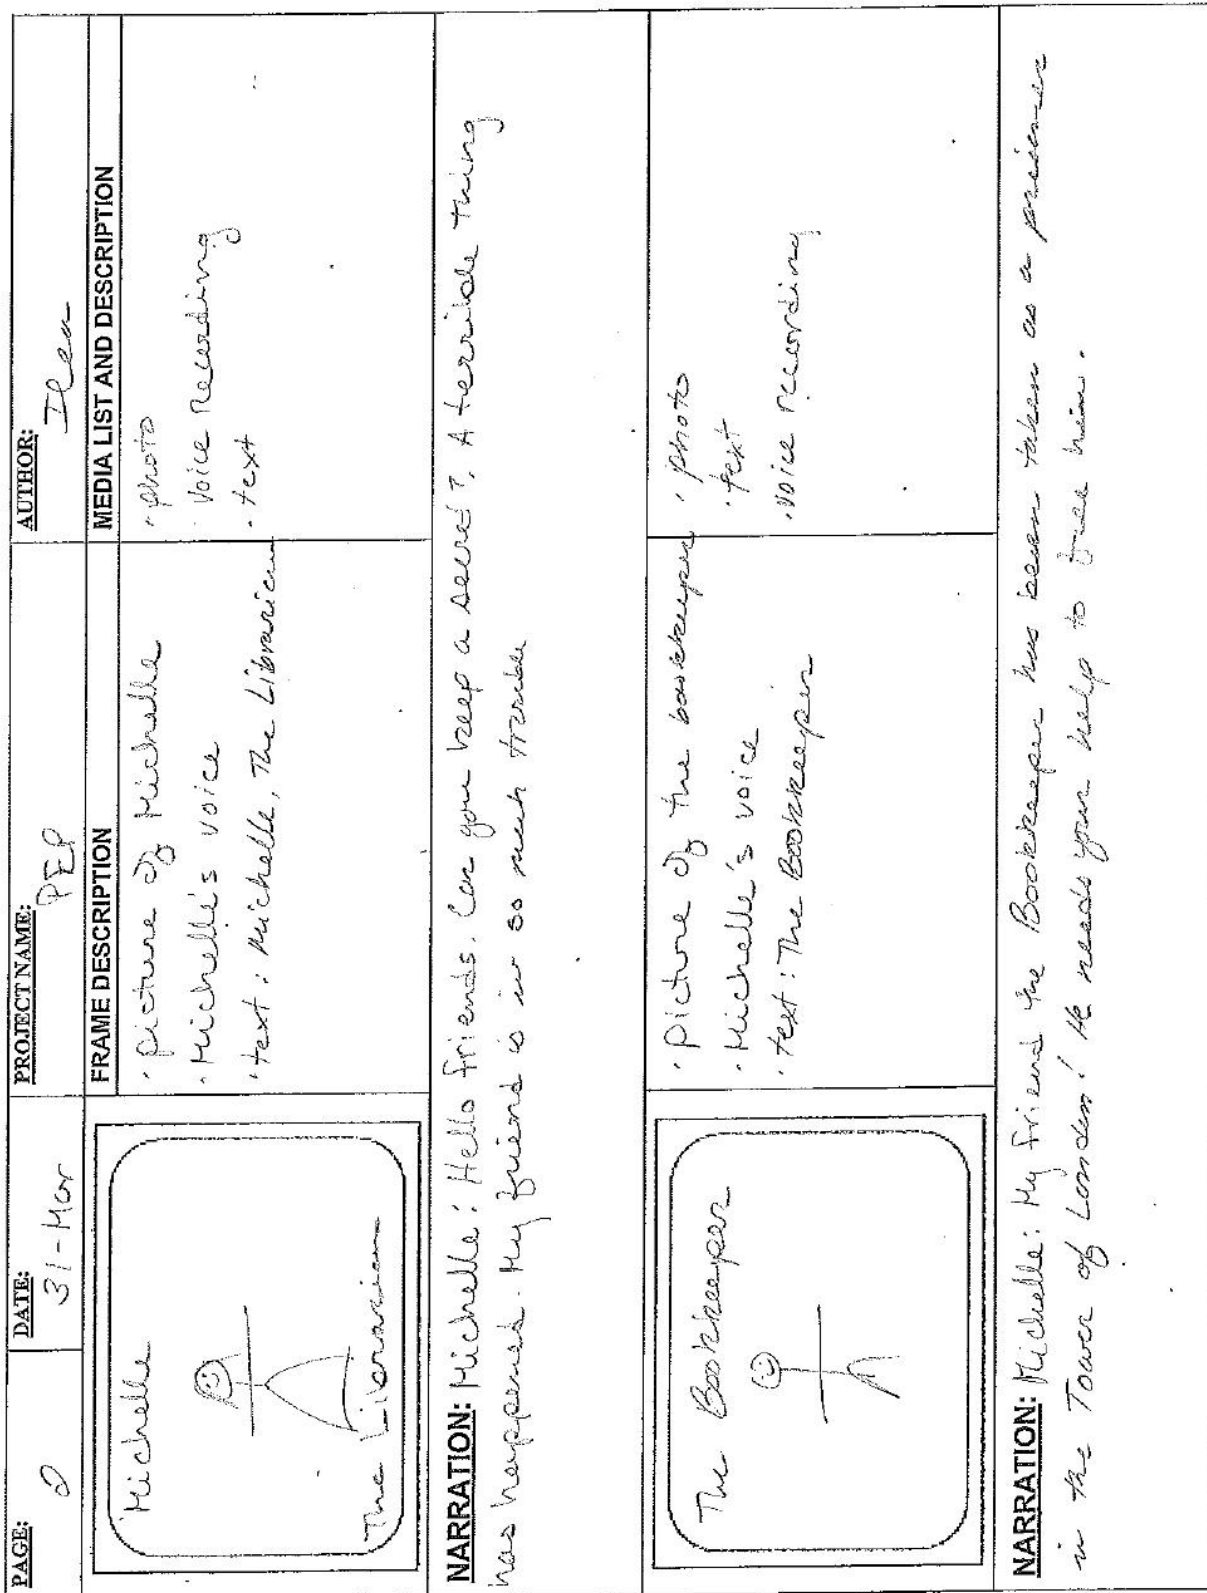 PAGE: DATE: 31-Mar PROJECT NAME: PEP AUTHOR:
FRAME DESCRIPTION MEDIA LIST AND DESCRIPTION
Michelle
The Librarian
· picture of Michelle
· Michelle's voice
· text: Michelle, The Librarian
· photo
· Voice Recording
· text
NARRATION: Michelle: Hello friends. Can you keep a secret? A terrible thing
has happened. My friend is in so much trouble
The Bookkeeper
· picture of the bookkeeper
· Michelle's voice
· text: The Bookkeeper
· photo
· text
· voice recording
NARRATION: Michelle: My friend the Bookkeeper has been taken as a prisoner
in the Tower of London! He needs your help to free him.